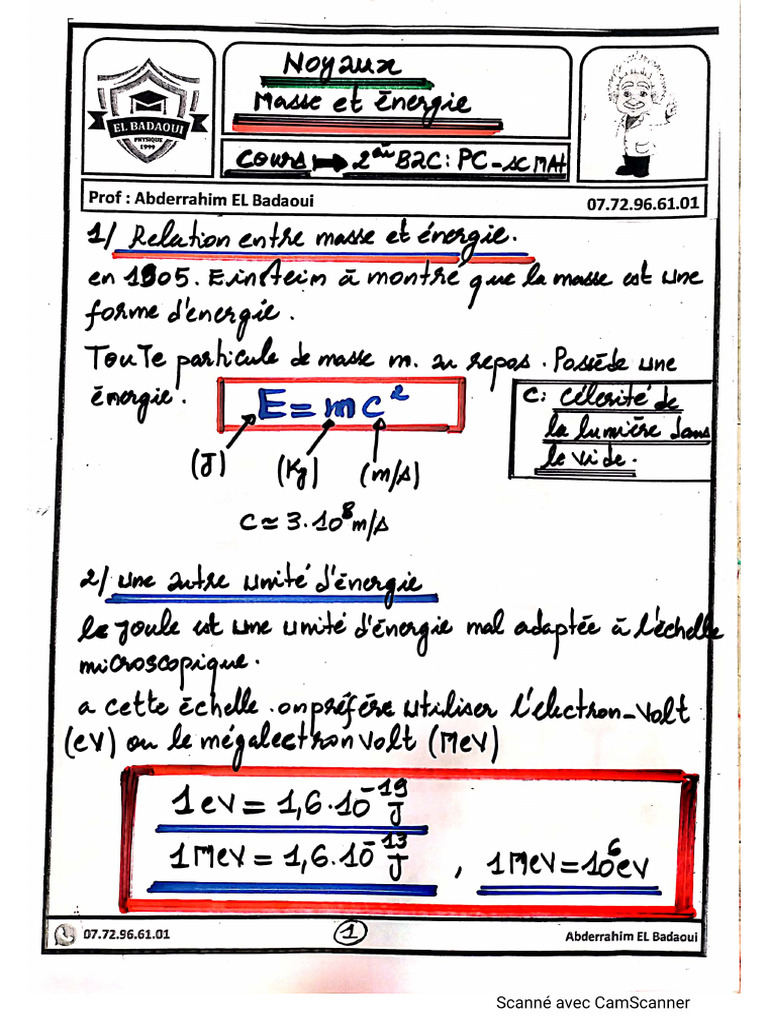 EL BADAOUI
PHYSIQUE
1999
Noyaux
Masse et énergie
Cours → 2 B2C: PC - SC MAt
Prof : Abderrahim EL Badaoui
07.72.96.61.01
1/ Relation entre masse et énergie.
en 1905. Einstein à montré que la masse est une
forme d'énergie.
Toute particule de masse m. au repos. Possède une
énergie.
E = mc²
(J) (Kg) (m/s)
C: Célérité de
la lumière dans
le vide.
C ≃ 3.10⁸ m/s
2/ une autre unité d'énergie
le Joule est une unité d'énergie mal adaptée à l'échelle
microscopique.
a cette échelle. on préfére utiliser l'électron-Volt
(eV) ou le mégalectron volt (MeV)
1 eV = 1,6.10⁻¹⁹ J
1 MeV = 1,6.10⁻¹³ J , 1 MeV = 10⁶ eV
07.72.96.61.01
1
Abderrahim EL Badaoui
Scanné avec CamScanner